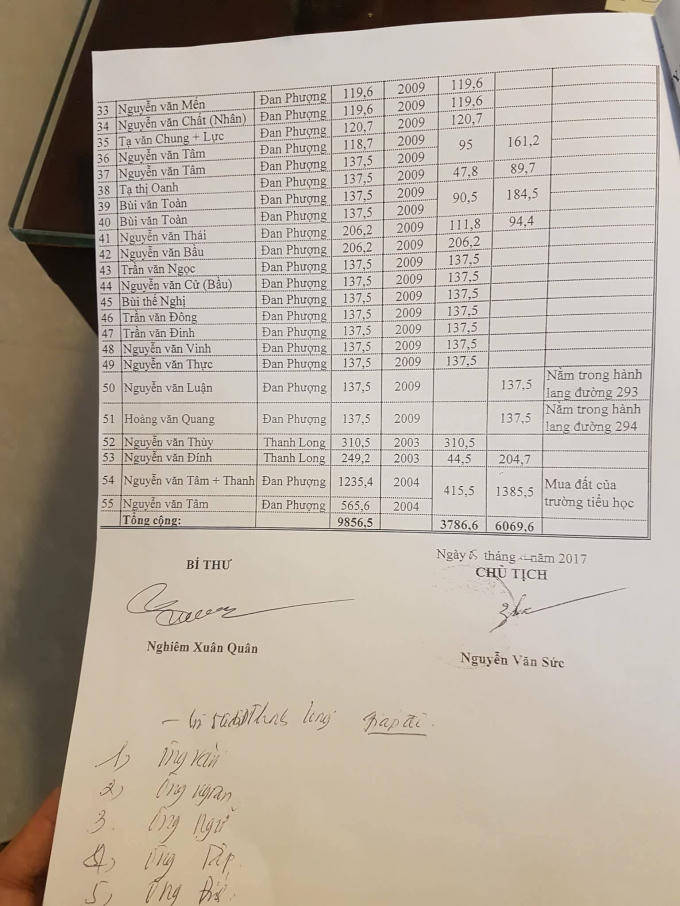 33 Nguyễn văn Mến Đan Phượng 119,6 2009 119,6
34 Nguyễn văn Chất (Nhân) Đan Phượng 119,6 2009 119,6
35 Tạ văn Chung + Lực Đan Phượng 120,7 2009 120,7
36 Nguyễn văn Tâm Đan Phượng 118,7 2009 95 161,2
37 Nguyễn văn Tâm Đan Phượng 137,5 2009
38 Tạ thị Oanh Đan Phượng 137,5 2009 47,8 89,7
39 Bùi văn Toàn Đan Phượng 137,5 2009 90,5 184,5
40 Bùi văn Toàn Đan Phượng 137,5 2009
41 Nguyễn văn Thái Đan Phượng 206,2 2009 111,8 94,4
42 Nguyễn văn Bầu Đan Phượng 206,2 2009 206,2
43 Trần văn Ngọc Đan Phượng 137,5 2009 137,5
44 Nguyễn văn Cử (Bầu) Đan Phượng 137,5 2009 137,5
45 Bùi thế Nghị Đan Phượng 137,5 2009 137,5
46 Trần văn Đông Đan Phượng 137,5 2009 137,5
47 Trần văn Đinh Đan Phượng 137,5 2009 137,5
48 Nguyễn văn Vinh Đan Phượng 137,5 2009 137,5
49 Nguyễn văn Thực Đan Phượng 137,5 2009 137,5
50 Nguyễn văn Luận Đan Phượng 137,5 2009 137,5 Nằm trong hành
lang đường 293
51 Hoàng văn Quang Đan Phượng 137,5 2009 137,5 Nằm trong hành
lang đường 294
52 Nguyễn văn Thùy Thanh Long 310,5 2003 310,5
53 Nguyễn văn Đính Thanh Long 249,2 2003 44,5 204,7
54 Nguyễn văn Tâm + Thanh Đan Phượng 1235,4 2004 415,5 1385,5 Mua đất của
trường tiểu học
55 Nguyễn văn Tâm Đan Phượng 565,6 2004
Tổng cộng: 9856,5 3786,6 6069,6
Ngày tháng năm 2017
BÍ THƯ CHỦ TỊCH
Nghiêm Xuân Quân Nguyễn Văn Sức
long
1)
2) Ông
3. Ông Ngữ
4) Ông
5) Ông